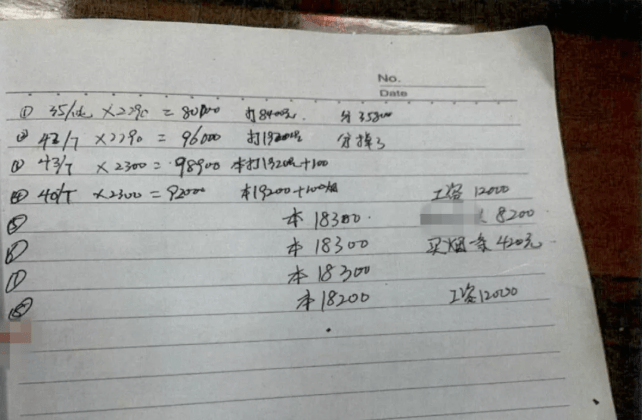 No.
Date
① 35/ ×2290 = 80000 打8400元 分35800
② 42/T ×2290 = 96000 打19200 分掉了
③ 43/T ×2300 = 98900 本打19200+100
④ 40/T ×2300 = 92000 本19200+100 工资 12000
⑤ 本 18300 8200
⑥ 本 18300 买烟 条 420元
⑦ 本 18300
⑧ 本 18200 工资12000